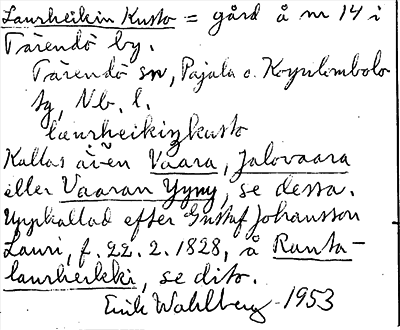 Laurheikin Kusto = gård å nr 14 i
Tärendö by.
Tärendö sn, Pajala o. Korpilombolo
tg, Nb. l.
laurheikiŋkusto
Kallas även Vaara, Jalovaara
eller Vaaran Jyny, se dessa.
Uppkallad efter Gustaf Johansson
Lauri, f. 22. 2. 1828, å Ranta-
laurheikki, se dito.
Erik Wahlberg 1953